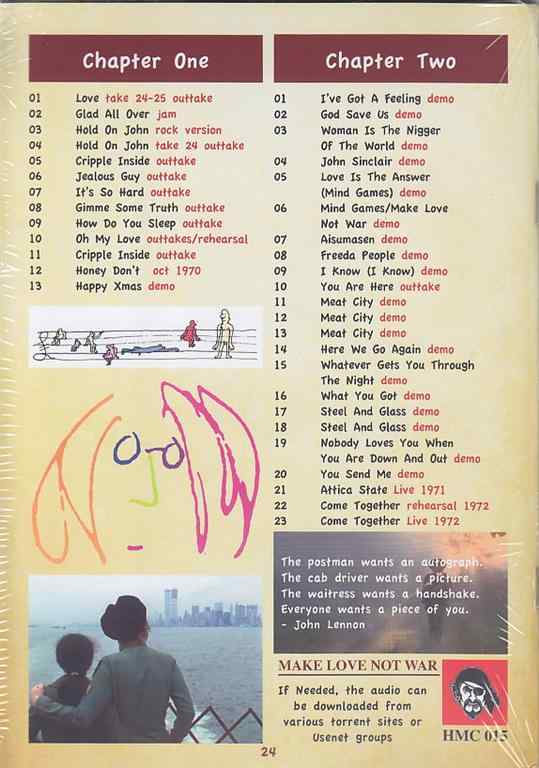 Chapter One
01 Love take 24-25 outtake
02 Glad All Over jam
03 Hold On John rock version
04 Hold On John take 24 outtake
05 Cripple Inside outtake
06 Jealous Guy outtake
07 It's So Hard outtake
08 Gimme Some Truth outtake
09 How Do You Sleep outtake
10 Oh My Love outtakes/rehearsal
11 Cripple Inside outtake
12 Honey Don't oct 1970
13 Happy Xmas demo
Chapter Two
01 I've Got A Feeling demo
02 God Save Us demo
03 Woman Is The Nigger
Of The World demo
04 John Sinclair demo
05 Love Is The Answer
(Mind Games) demo
06 Mind Games/Make Love
Not War demo
07 Aisumasen demo
08 Freeda People demo
09 I Know (I Know) demo
10 You Are Here outtake
11 Meat City demo
12 Meat City demo
13 Meat City demo
14 Here We Go Again demo
15 Whatever Gets You Through
The Night demo
16 What You Got demo
17 Steel And Glass demo
18 Steel And Glass demo
19 Nobody Loves You When
You Are Down And Out demo
20 You Send Me demo
21 Attica State Live 1971
22 Come Together rehearsal 1972
23 Come Together Live 1972
The postman wants an autograph.
The cab driver wants a picture.
The waitress wants a handshake.
Everyone wants a piece of you.
- John Lennon
MAKE LOVE NOT WAR
If Needed, the audio can
be downloaded from
various torrent sites or
Usenet groups
HMC 015
24